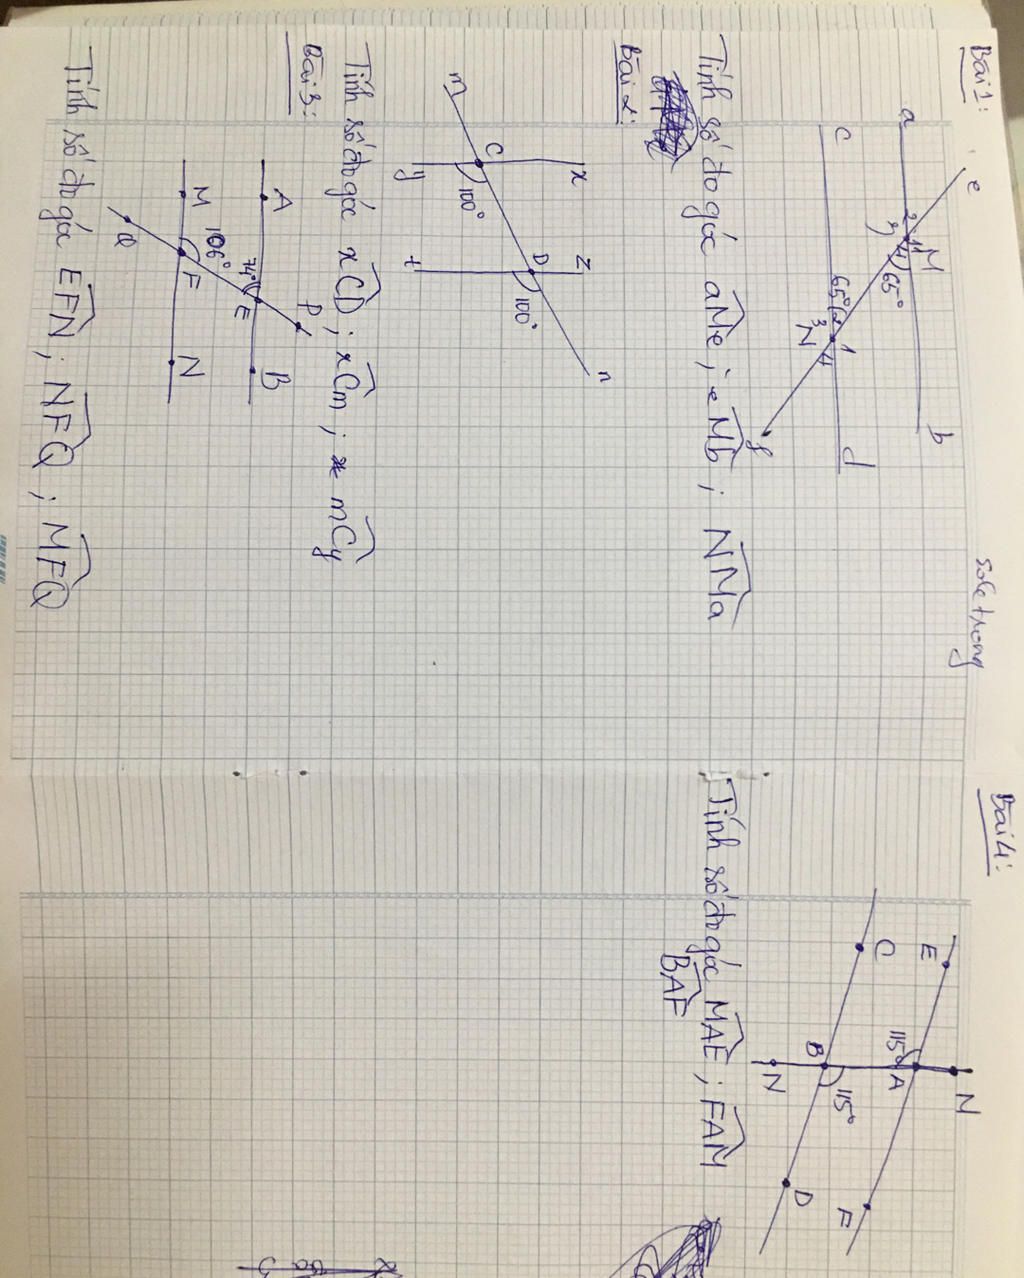 Bài 1:
so le trong
a
e
2
1
M
3
4
65°
b
c
65°
2
1
3
N
4
d
f
Tính số đo góc aMe; eMb; NMa
Bài 2:
m
C
x
y
100°
D
z
t
100°
n
Tính số đo góc xCD; xCm; mCy
Bài 3:
A
P
74°
E
B
M
106°
F
N
Q
Tính số đo góc EFN; NFQ; MFQ
Bài 4:
E
M
115°
A
F
C
B
115°
D
N
Tính số đo góc MAE; FAM
BAF